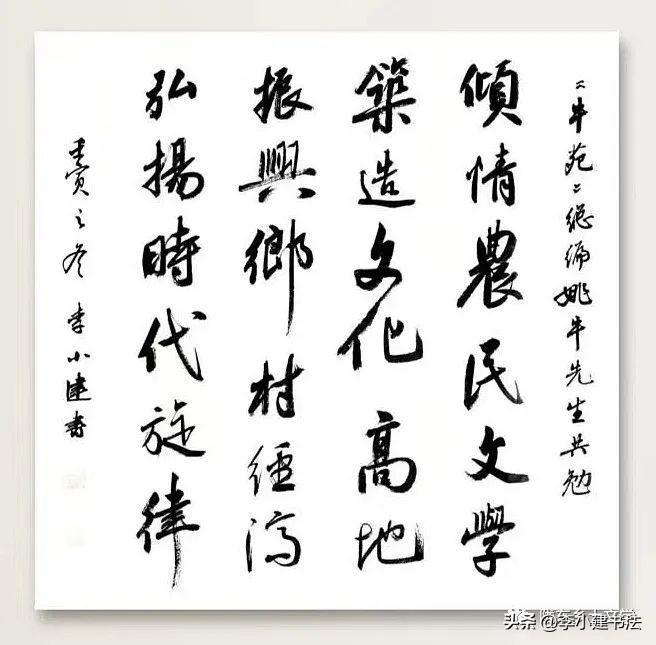 "牛苑"總編姚牛先生共勉
傾情農民文學
築造文化高地
振興鄉村經濟
弘揚時代旋律
壬寅之冬 李小建書
头条 @李小建书法